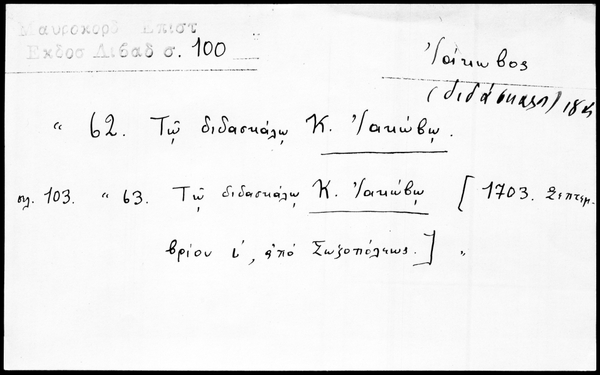 Μαυροκορδ Επιστ
Εκδοσ Λιβαδ σ. 100
Ἰάκωβος
(διδάσκαλος)
" 62. Τῷ διδασκάλῳ Κ. Ἰακώβῳ.
σελ. 103. " 63. Τῷ διδασκάλῳ Κ. Ἰακώβῳ [1703. Σεπτεμ-
βρίου ι´, ἀπό Σωζοπόλεως.] "